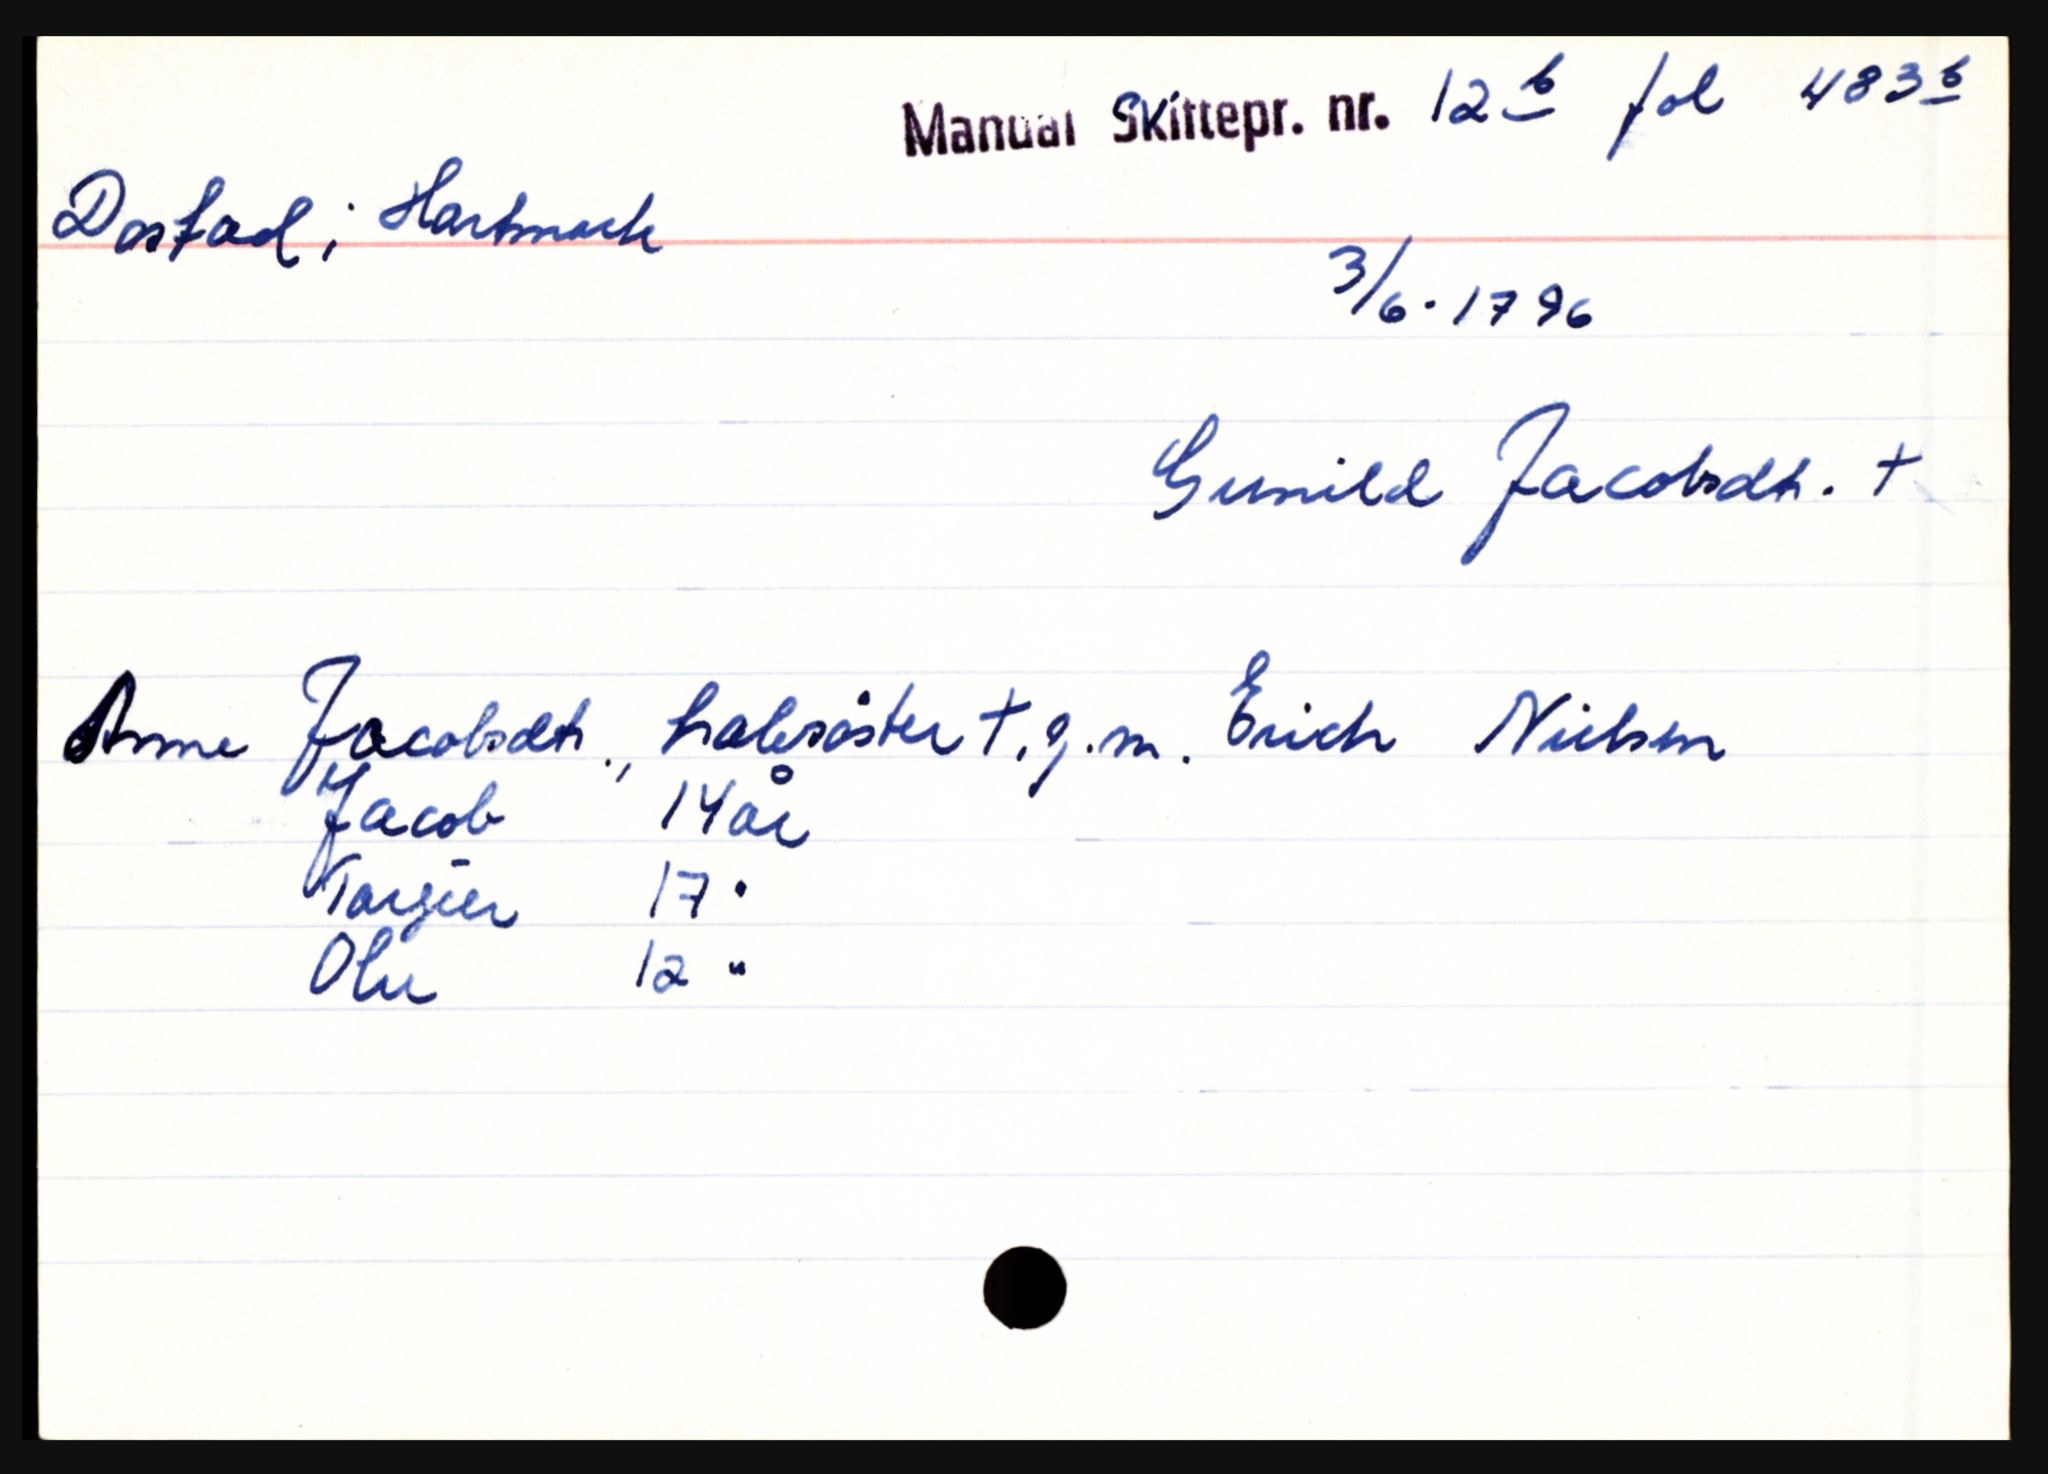 Manual Skiftepr. nr. 12 b fol 483 b
Dastad i Hartmark
3/6. 1796
Gunild Jacobsdt. +
Anne Jacobsdt., halvsöster +, g.m. Erich Nielsen
Jacob 14 år
Targier 17 "
Olu 12 "